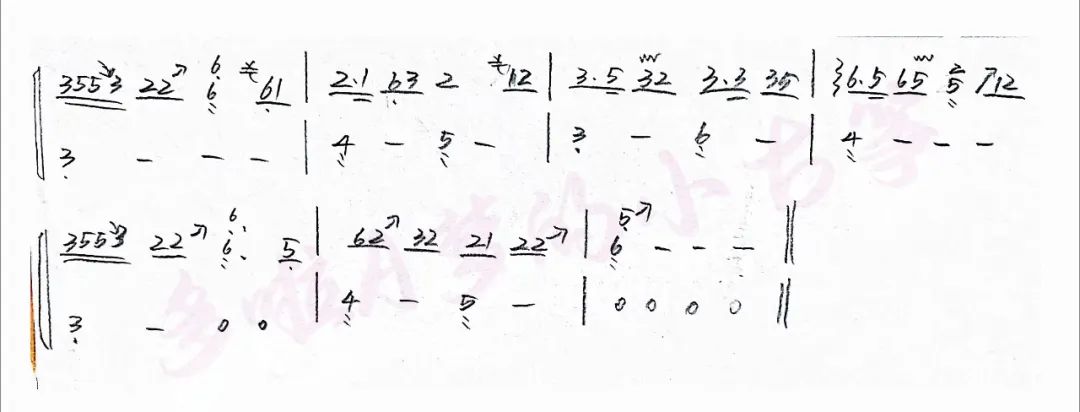 3553 22↗ 6 6 61 | 2.1 63 2 12 | 3.5 32 3.3 35 | 6.5 65 2 5 ↗12
3 - - - | 4 - 5 - | 3 - 6 - | 4 - - -
3553 22↗ 6 6. 5 | 62↗ 32 21 22↗ | 5↗ 6 - - - ||
3 - 0 0 | 4 - 5 - | 0 0 0 0 ||
多啦A梦的小古筝